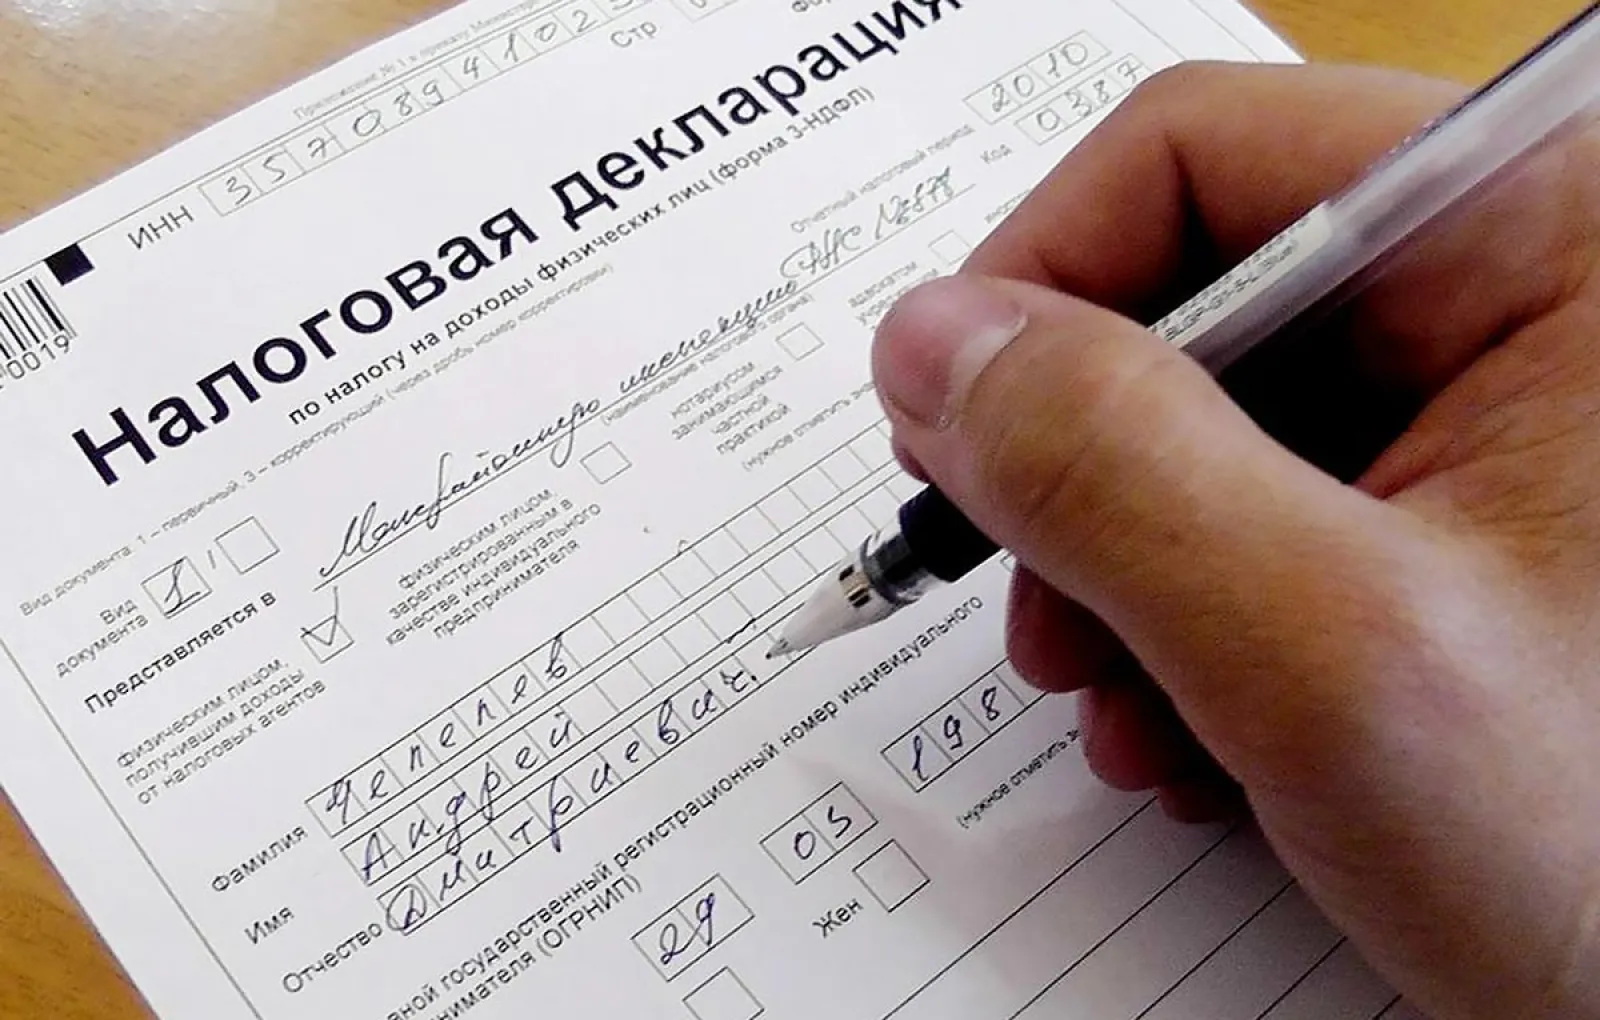 Приложение № 1 к приказу Министерс
ИНН 3570894102
Стр
Налоговая декларация
по налогу на доходы физических лиц (форма 3-НДФЛ)
Вид документа: 1 – первичный, 3 – корректирующий (через дробь номер корректировки)
Отчетный налоговый период 2010
Код 0387
0019
Вид документа 1 /
Представляется в Межрайонную инспекцию ФНС №
(наименование налогового органа)
физическим лицом,
получившим доходы
от налоговых агентов
физическим лицом,
зарегистрированным в
качестве индивидуального
предпринимателя
нотариусом
занимающимся
частной
практикой
адвокатом
(нужное отметить зна
Фамилия Чепелев
Имя Андрей
Отчество Дмитриевич
государственный регистрационный номер индивидуального
(ОГРНИП)
29 03 198
Жен
(нужное отметить з